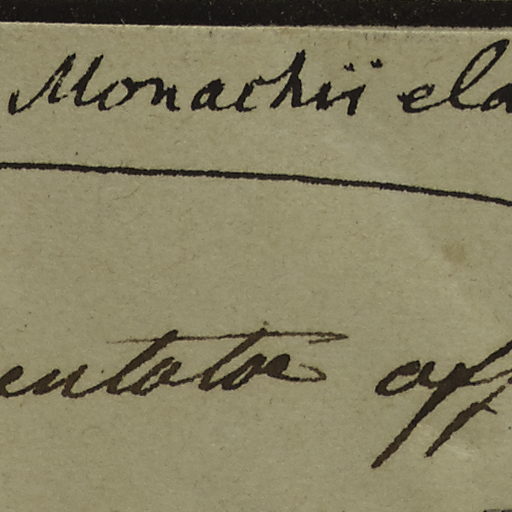 Monachii ela
entator aff